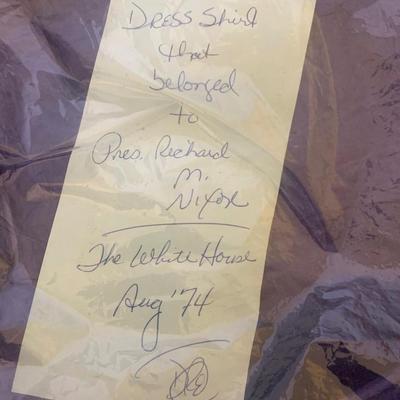 DRESS Shirt
that
belonged
to
Pres. Richard
M.
Nixon
The White House
Aug '74